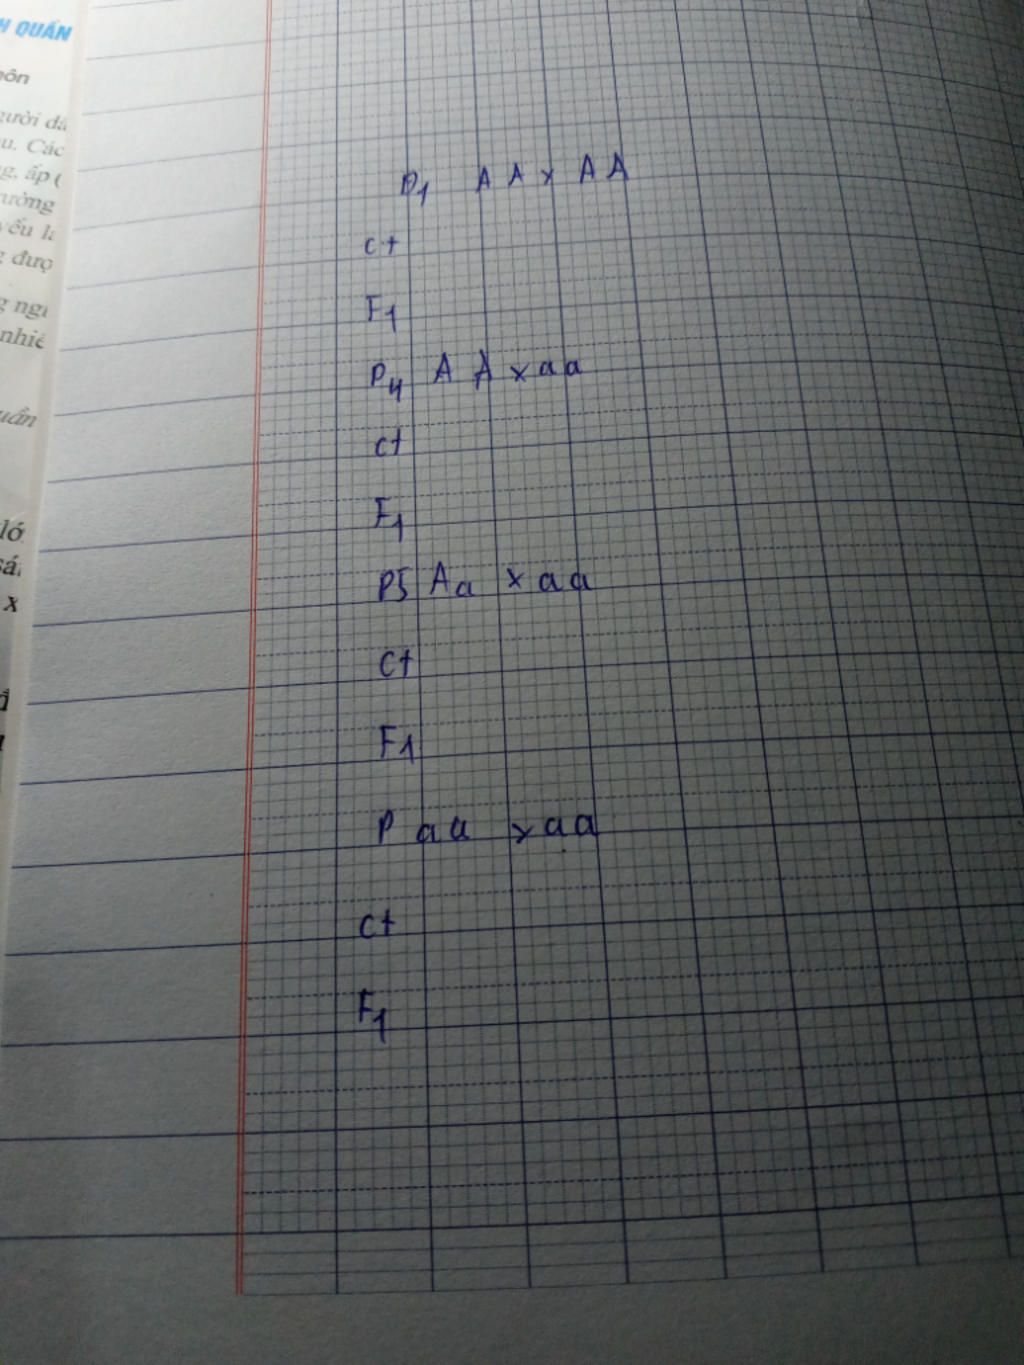 H QUẦN
gười đã
u. Các
g, ấp
trường
yếu là
g đượ
g ngi
nhiê
uần
lớ
x
P1 AA x AA
Ct
F1
P4 AA x aa
Ct
F1
P5 Aa x aa
Ct
F1
P aa x aa
Ct
F1